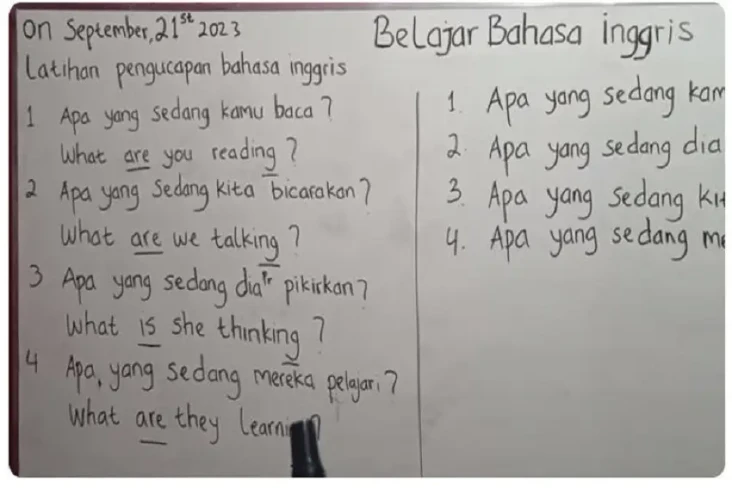 On September, 21st 2023
Latihan pengucapan bahasa inggris
1 Apa yang sedang kamu baca?
What are you reading?
2 Apa yang Sedang kita bicarakan?
What are we talking?
3 Apa yang sedang dia pr pikirkan?
What is she thinking?
4 Apa, yang sedang mereka pelajari?
What are they
Belajar Bahasa inggris
1. Apa yang sedang
2. Apa yang sedang dia
3. Apa yang sedang
4. Apa yang sedang